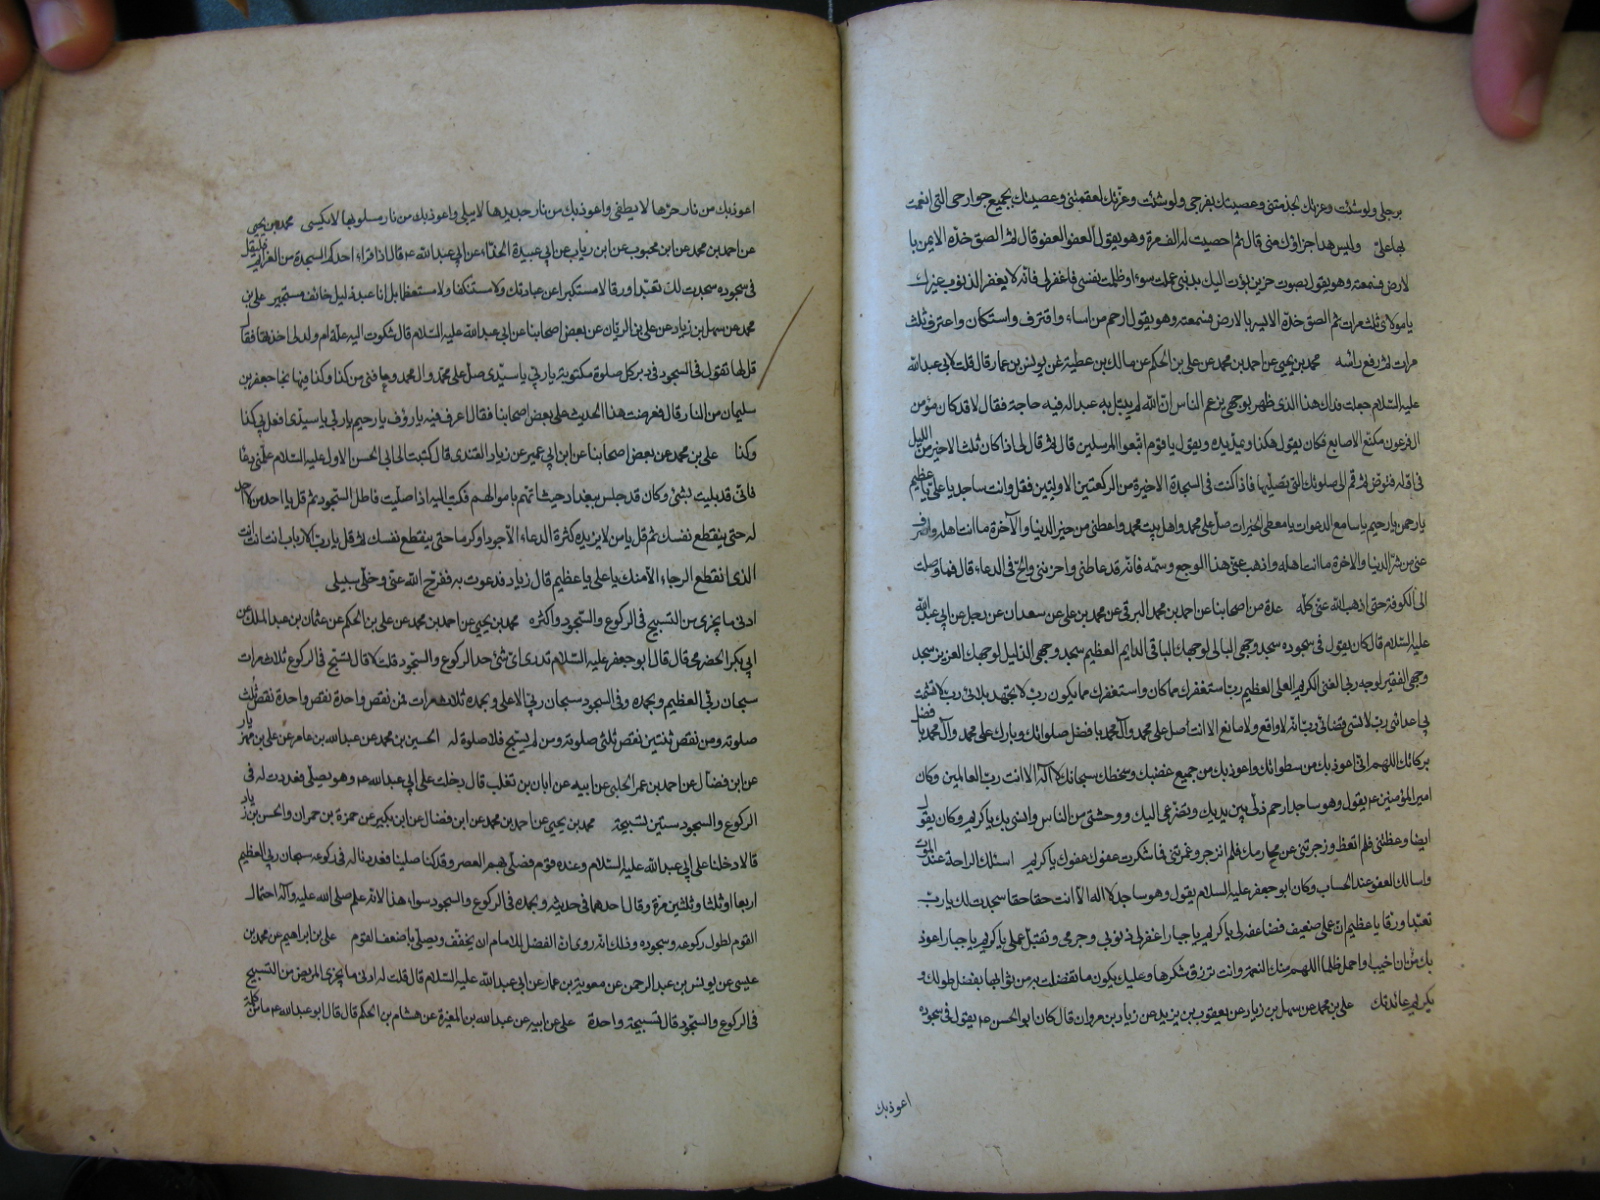 برجلی ولو شئت وعزتك لجذمتنی وعصیتك بفرجی ولو شئت وعزتك لعقمتنی وعصیتك بجمیع جوارحی التی انعمت
بها علیّ ولیس هذا جزاؤك منی قال ثم احصیت له الف مرة وهو یقول العفو العفو قال ثم الصق خدّه الایمن با
لارض فسمعته وهو یقول بصوت حزین بؤت الیك بذنبی عملت سوء او ظلمت نفسی فاغفر لی فانّه لا یغفر الذنوب غیرك
یا مولای ثلث مرات ثم الصق خدّه الایسر بالارض فسمعته وهو یقول ارحم من اساء واقترف واستكان واعترف ثلث
مرات ثم رفع راسه محمد بن یحیی عن احمد بن محمد عن علی بن الحكم عن مالك بن عطیة عن یونس بن عمار قال قلت لابی عبدالله
علیه السلام جعلت فداك هذا الذی ظهر بوجهی یزعم الناس انّ الله لم یبتل به عبدا له فیه حاجة فقال لا قد كان مؤمن
ال فرعون مكنّع الاصابع فكان یقول هكذا ویمدّ یده ویقول یا قوم اتبعوا المرسلین قال ثم قال لی اذا كان ثلث الاخیر من اللیل
فی اوله فتوض ثم قم الی صلوتك التی تصلیها فاذا كنت فی السجدة الاخیرة من الركعتین الاولیین فقل وانت ساجد یا علی یا عظیم
یا رحمن یا رحیم یا سامع الدعوات یا معطی الخیرات صل علی محمد واهل بیت محمد واعطنی من خیر الدنیا والآخرة ما انت اهله واصرف
عنی من شرّ الدنیا والاخرة ما انت اهله واذهب عنّی هذا الوجع وسمّه فانّه قد غاظنی واحزننی والحّ فی الدعاء قال فما وصلت
الی الكوفة حتی اذهب الله عنی كلّه عدة من اصحابنا عن احمد بن محمد البرقی عن محمد بن علی عن سعدان عن رجل عن ابی عبدالله
علیه السلام قال كان یقول فی سجوده سجد وجهی البالی لوجهك الباقی الدایم العظیم سجد وجهی الذلیل لوجهك العزیز سجد
وجهی الفقیر لوجه ربی الغنی الكریم العلی العظیم ربّ استغفرك مما كان واستغفرك مما یكون ربّ لا تجهد بلائی ربّ لا تشمت
بی اعدائی ربّ لا تسئ قضائی ربّ انّه لا دافع ولا مانع الا انت صل علی محمد وآل محمد بافضل صلواتك وبارك علی محمد وآل محمد بافضل
بركاتك اللهم انی اعوذ بك من سطواتك واعوذ بك من جمیع غضبك وسخطك سبحانك لا اله الا انت ربّ العالمین وكان
امیرالمؤمنین ع یقول وهو ساجد ارحم ذلّی بین یدیك وتضرّعی الیك ووحشتی من الناس وانسی بك یا كریم وكان یقول
ایضا وعظتنی فلم اتعظ وزجرتنی عن محارمك فلم انزجر وغمرتنی فما شكرت عفوك عفوك یا كریم اسئلك الراحة عند الموت
واسالك العفو عند الحساب وكان ابو جعفر علیه السلام یقول وهو ساجد لا اله الّا انت حقا حقا سجدت لك یا ربّ
تعبّدا ورقا یا عظیم انّ عملی ضعیف فضاعفه لی یا كریم یا جبار اغفر لی ذنوبی وجرمی وتقبّل عملی یا كریم یا جبار اعوذ
بك من ان اخیب او احمل ظلما اللهم منك النعمة وانت ترزق شكرها وعلیك یكون ما تفضلت به من ثوابها بفضل طولك و
بكریم عائدتك علی بن محمد عن سهل بن زیاد عن یعقوب بن یزید عن زیاد بن مروان قال كان ابو الحسن ع یقول فی سجوده
اعوذ بك
اعوذ بك من نار حرّها لا یطفی واعوذ بك من نار جدیدها لا یبلی واعوذ بك من نار مسلوبها لا یكسی محمد بن یحیی
عن احمد بن محمد عن ابن محبوب عن ابن ریاب عن ابی عبیدة الحذّاء عن ابی عبدالله ع قال اذا قراء احدكم السجدة من العزایم فلیقل
فی سجوده سجدت لك تعبّدا ورقا لا مستكبرا عن عبادتك ولا مستنكفا ولا مستعظما بل انا عبد ذلیل خائف مستجیر علی بن
محمد عن سهل بن زیاد عن علی بن الریان عن بعض اصحابنا عن ابی عبدالله علیه السلام قال شكوت الیه علّة ام ولد لی اخذتها فقال
قل لها تقول فی السجود فی دبر كل صلوة مكتوبة یا ربّی یا سیّدی صلّ علی محمد وال محمد وعافنی من كذا وكذا فبها نجا جعفر بن
سلیمان من النار قال فعرضت هذا الحدیث علی بعض اصحابنا فقال اعرف فیه یا رؤف یا رحیم یا ربّی یا سیدی افعل بی كذا
وكذا علی بن محمد عن بعض اصحابنا عن ابن ابی عمیر عن زیاد القندی قال كتبت الی ابی الحسن الاول علیه السلام علّمنی دعا
فانّی قد بلیت بشئ وكان قد حبس ببغداد حیث اتّهم باموالهم فكتب الیه اذا صلّیت فاطل السجود ثم قل یا احد من لا احد
له حتی ینقطع نفسك ثم قل یا من لا یزیده كثرة الدعاء الا جودا وكرما حتی ینقطع نفسك ثم قل یا ربّ الارباب انت انت انت
الذی انقطع الرجاء الّا منك یا علی یا عظیم قال زیاد فدعوت به ففرّج الله عنی وخلّی سبیلی
ادنی ما یجزی من التسبیح فی الركوع والسّجود واكثره محمد بن یحیی عن احمد بن محمد عن علی بن الحكم عن عثمان بن عبد الملك عن
ابی بكر الحضرمی قال قال ابو جعفر علیه السلام تدری ایّ شئ حد الركوع والسّجود قلت لا قال تسبّح فی الركوع ثلاث مرات
سبحان ربّی العظیم وبحمده وفی السجود سبحان ربّی الاعلی وبحمده ثلاث مرات فمن نقص واحدة نقص ثلث
صلوته ومن نقص ثنتین نقص ثلثی صلوته ومن لم یسبّح فلا صلوة له الحسین بن محمد عن عبدالله بن عامر عن علی بن مهزیار
عن ابن فضال عن احمد بن عمر الحلبی عن ابیه عن ابان بن تغلب قال دخلت علی ابی عبدالله ع وهو یصلّی فعددت له فی
الركوع والسجود ستین تسبیحة محمد بن یحیی عن احمد بن محمد عن ابن فضال عن ابن بكیر عن حمزة بن حمران والحسن بن زیاد
قالا دخلنا علی ابی عبدالله علیه السلام وعنده قوم فصلّی بهم العصر وقد كنا صلینا فعددنا له فی ركوعه سبحان ربی العظیم
اربعا او ثلثا وثلثین مرّة وقال احدهما فی حدیثه وبحمده فی الركوع والسجود سواء هذا لانّه علم صلی الله علیه وآله احتمال
القوم لطول ركوعه وسجوده وذلك انّه روی انّ الفضل للامام ان یخفّف ویصلّی باضعف القوم علی بن ابراهیم عن محمد بن
عیسی عن یونس بن عبد الرحمن عن معویة بن عمار عن ابی عبدالله علیه السلام قال قلت له ادنی ما یجزی المریض من التسبیح
فی الركوع والسّجود قال تسبیحة واحدة علی عن ابیه عن عبدالله بن المغیرة عن هشام بن الحكم قال قال ابو عبدالله ع ما من كلمة